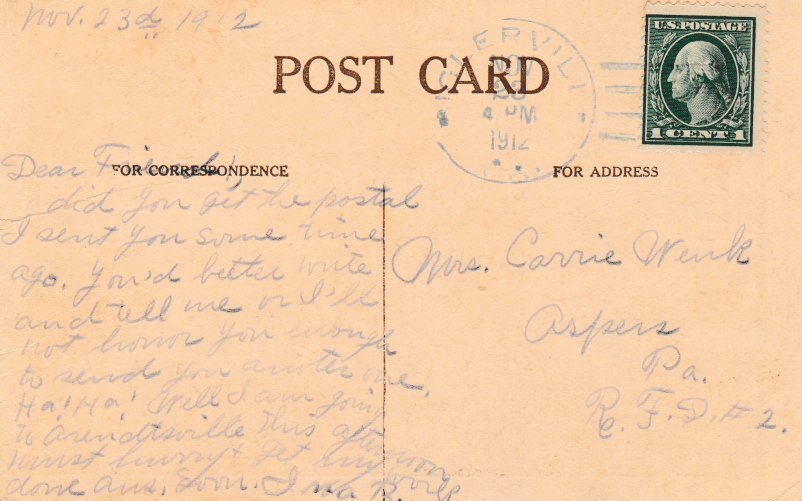 Nov. 23d 1912
POST CARD
NOV
23
4 PM
1912
U.S. POSTAGE
1 CENT 1
FOR CORRESPONDENCE
FOR ADDRESS
Dear Friend,
did you get the postal
I sent you some time
ago. You'd better write
and tell me or I'll
not honor you enough
to send you another one.
Ha! Ha! Well I am going
to Arendtsville this afternoon
must hurry & get my work
done ans. soon. Ina R.
Mrs. Carrie Wenk
Aspers
Pa.
R. F. D. # 2.